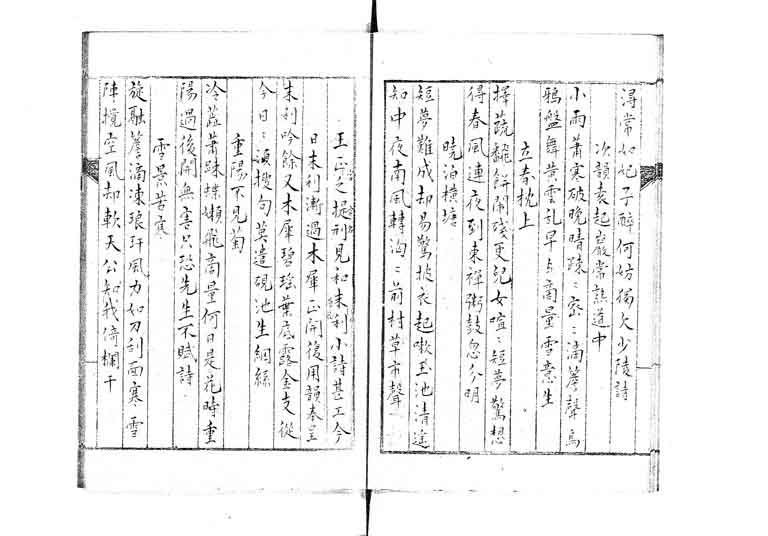 尋常如妃子醉何妨獨欠少陵詩
次韻袁起巖常熟道中
小雨蕭寒破晚晴踈〻密〻滴簷聲烏
鴉盤舞黄雲乱早与商量雪意生
立春枕上
擇蔬飜餅鬧殘更兒女喧〻短夢驚想
得春風連夜到東禪粥鼓忽分明
曉泊橫塘
短夢難成却易驚披衣起嗽玉池清遥
知中夜南風轉洶〻前村草市聲
王正之提刑見和末利小詩甚工今
日末利漸過木犀正開復用韻奉呈
末利吟餘又木犀碧瑤葉底露金支從
今日〻湏搜句莫遣硯池生網絲
重陽不見菊
冷蘂蕭踈蝶嬾飛商量何日是花時重
陽過後開無害只恐先生不賦詩
雪景苦寒
旋融簷滴凍琅玕風力如刀刮面寒雪
陣攙空風却軟天公知我倚欄干